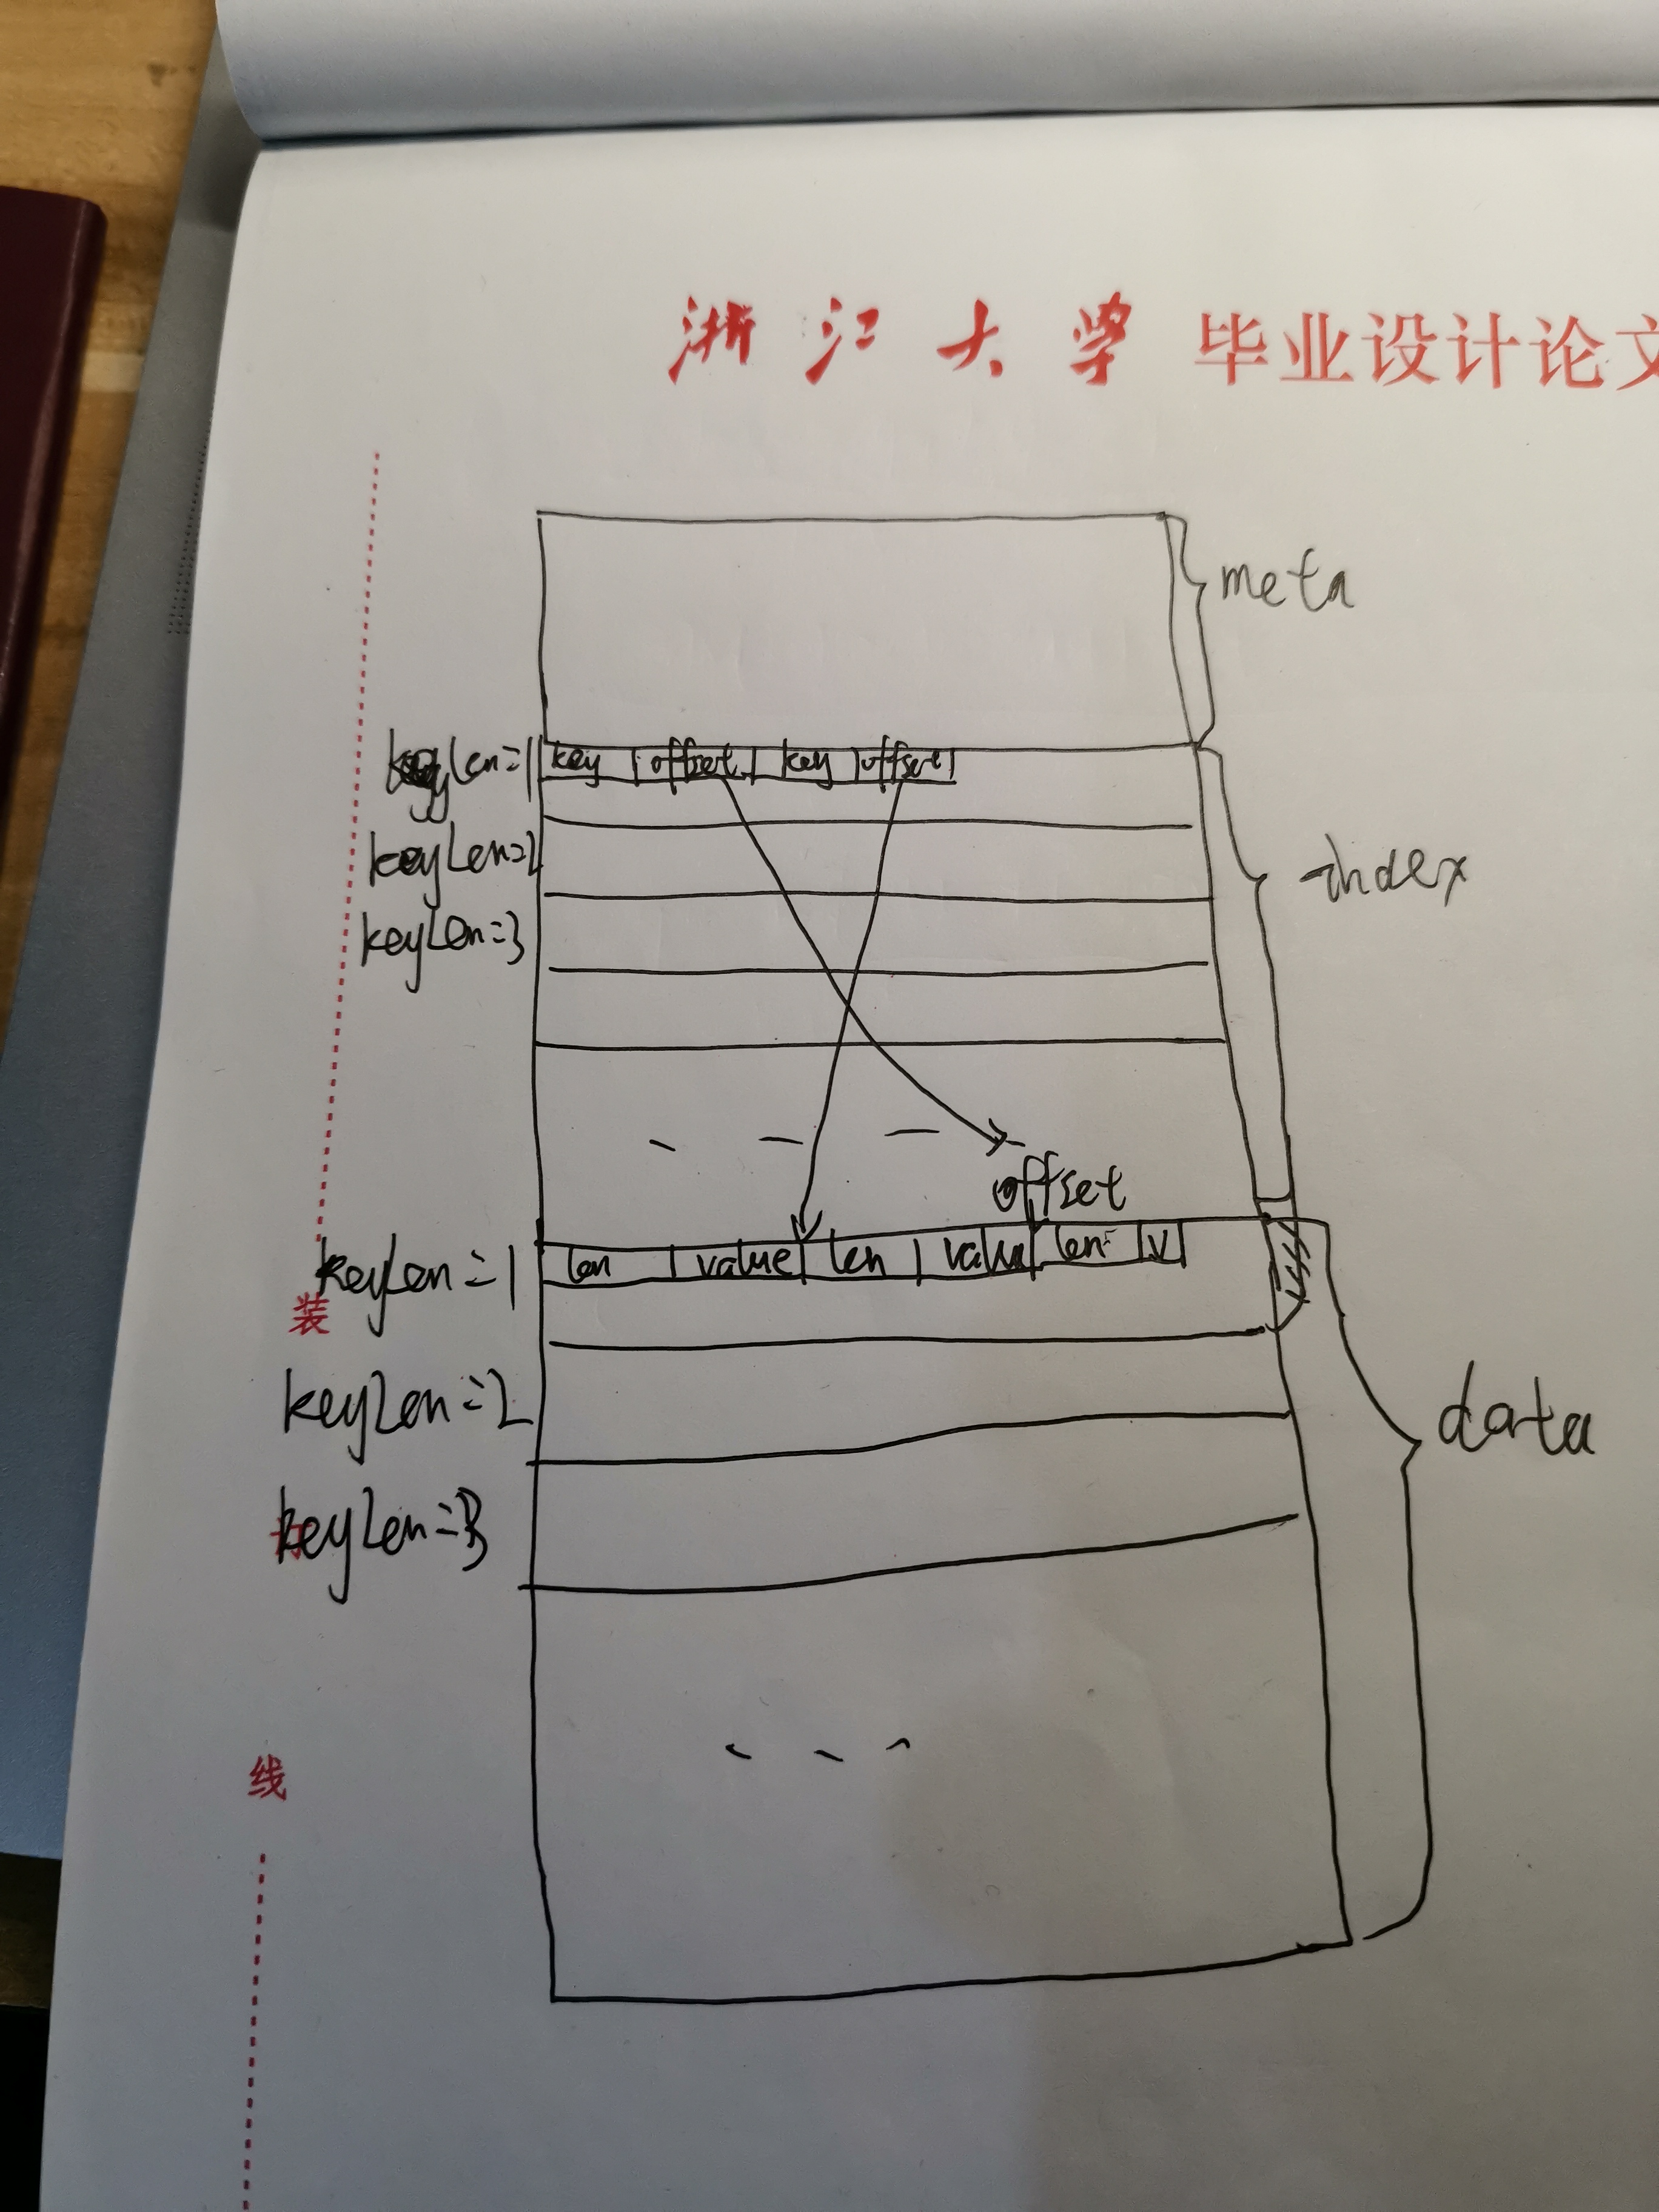 浙江大学 毕业设计论文
meta
keyLen=1 key offset key offset
keyLen=2
index
keyLen=3
offset
keyLen=1 len value len value len v
装
keyLen=2
data
keyLen=3
线